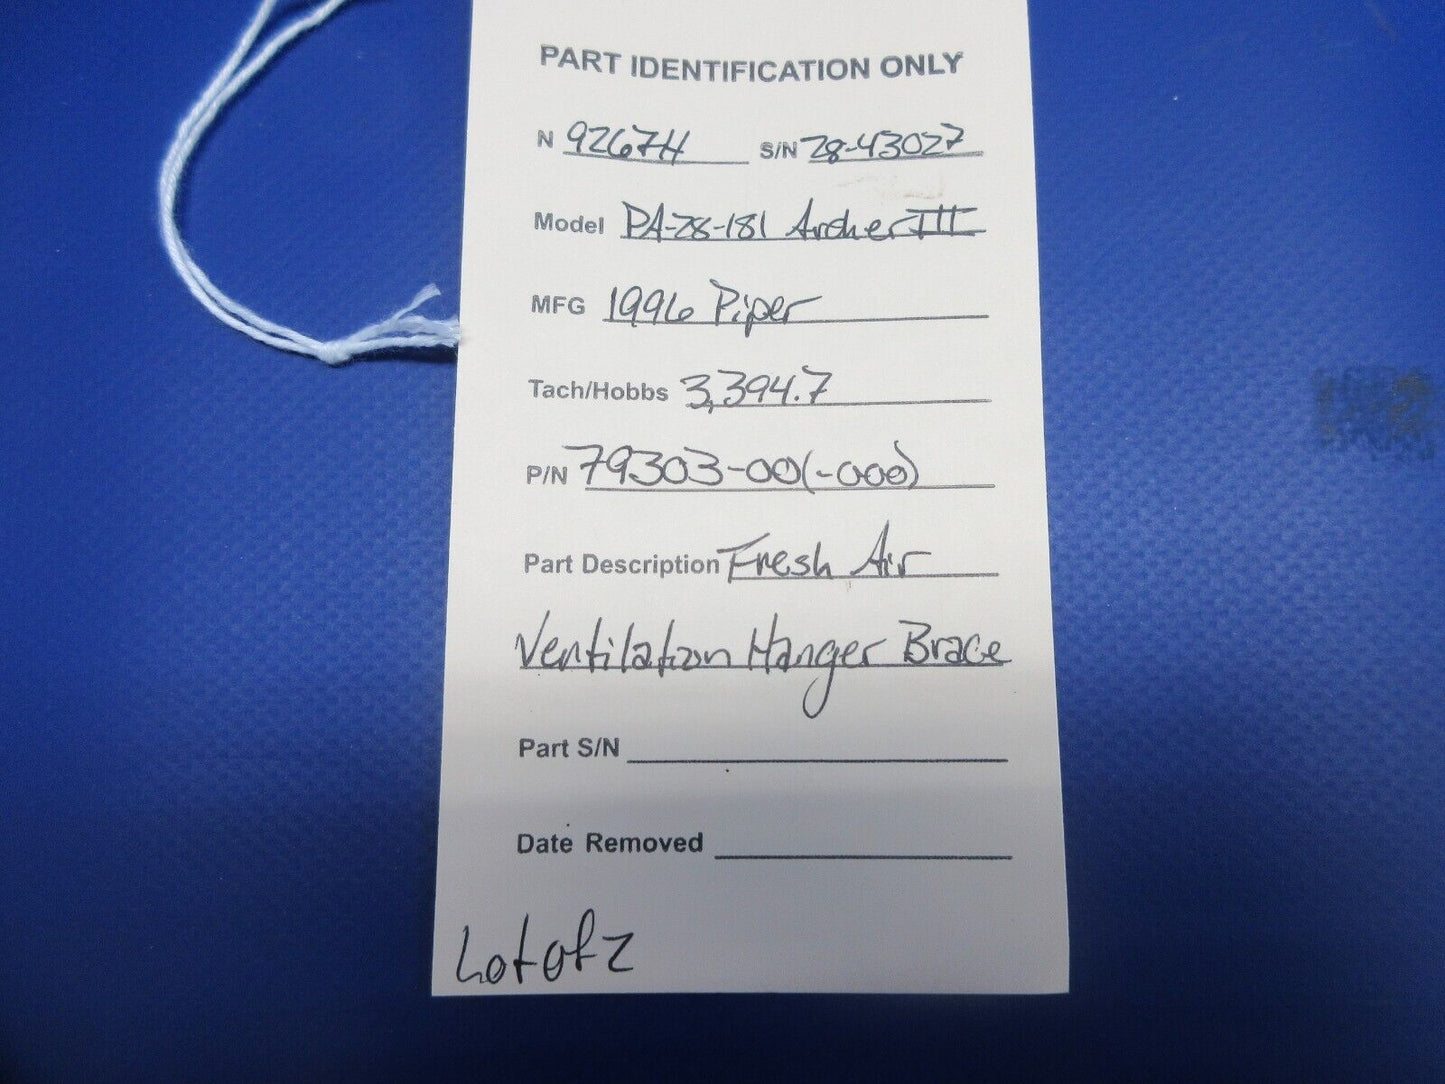 PART IDENTIFICATION ONLY
N 9267H S/N 28-43027
Model PA-28-181 Archer III
MFG 1996 Piper
Tach/Hobbs 3,394.7
P/N 79303-00(-000)
Part Description Fresh Air
Ventilation Hanger Brace
Part S/N
Date Removed
Lot of 2